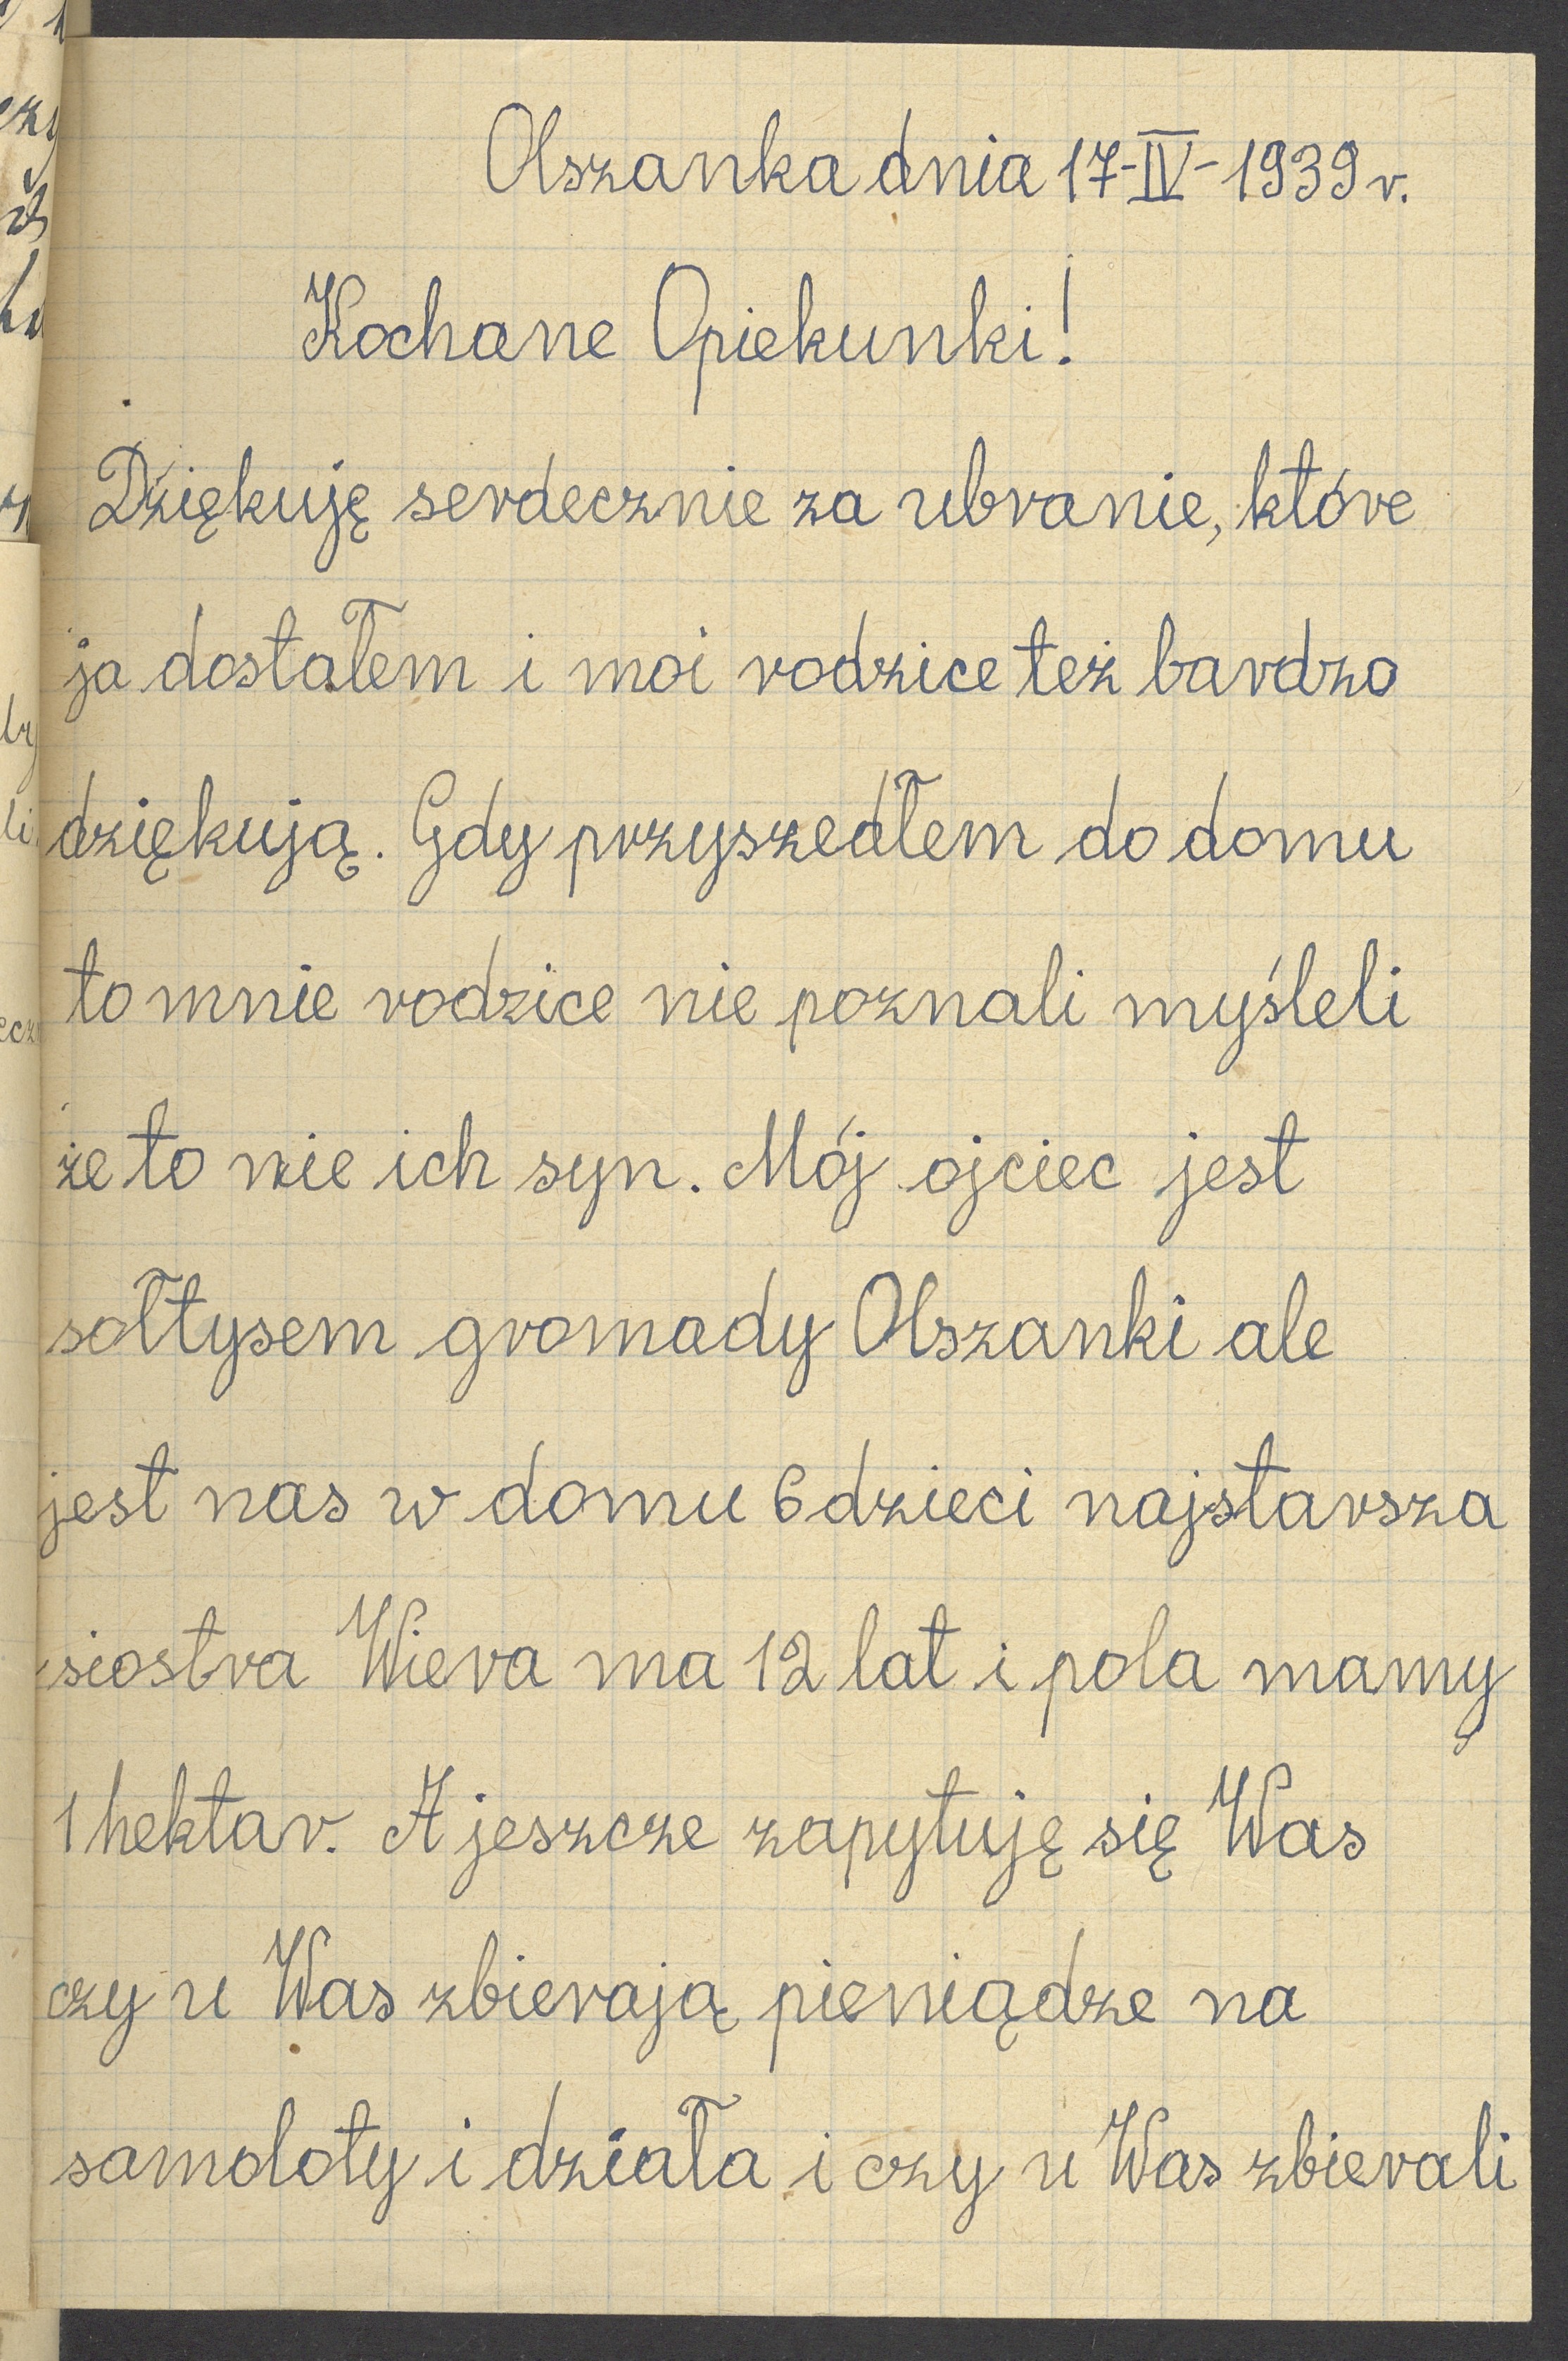 Olszanka dnia 17-IV-1939 r.
Kochane Opiekunki!
Dziękuję serdecznie za ubranie, które
ja dostałem i moi rodzice też bardzo
dziękują. Gdy przyszedłem do domu
to mnie rodzice nie poznali myśleli
że to nie ich syn. Mój ojciec jest
sołtysem gromady Olszanki ale
jest nas w domu 6 dzieci najstarsza
siostra Wiera ma 12 lat i pola mamy
1 hektar. A jeszcze zapytuję się Was
czy u Was zbierają pieniądze na
samoloty i działa i czy u Was zbierali